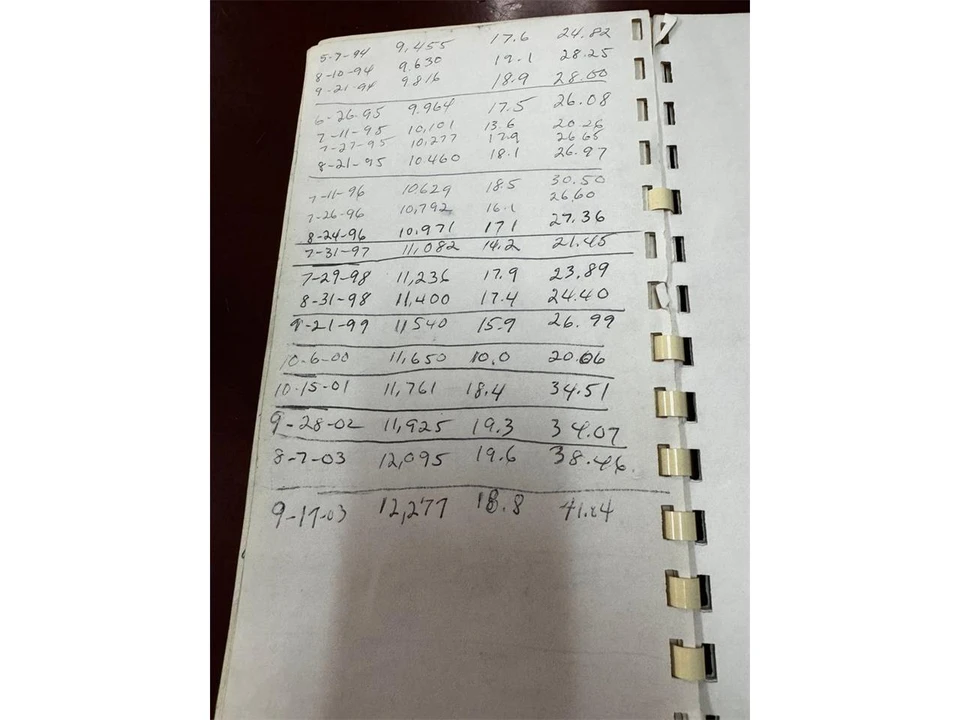 5-7-94 9,455 17.6 24.82
8-10-94 9,630 19.1 28.25
9-21-94 9,816 18.9 28.00
6-26-95 9,964 17.5 26.08
7-11-95 10,101 13.6 20.26
7-27-95 10,277 17.9 26.65
8-21-95 10,460 18.1 26.97
7-11-96 10,629 18.5 30.50
7-26-96 10,792 16.1 26.60
8-24-96 10,971 17.1 27.36
7-31-97 11,082 14.2 21.45
7-29-98 11,236 17.9 23.89
8-31-98 11,400 17.4 24.40
9-21-99 11540 15.9 26.99
10-6-00 11,650 10.0 20.06
10-15-01 11,761 18.4 34.51
9-28-02 11,925 19.3 34.07
8-7-03 12,095 19.6 38.46
9-17-03 12,277 18.8